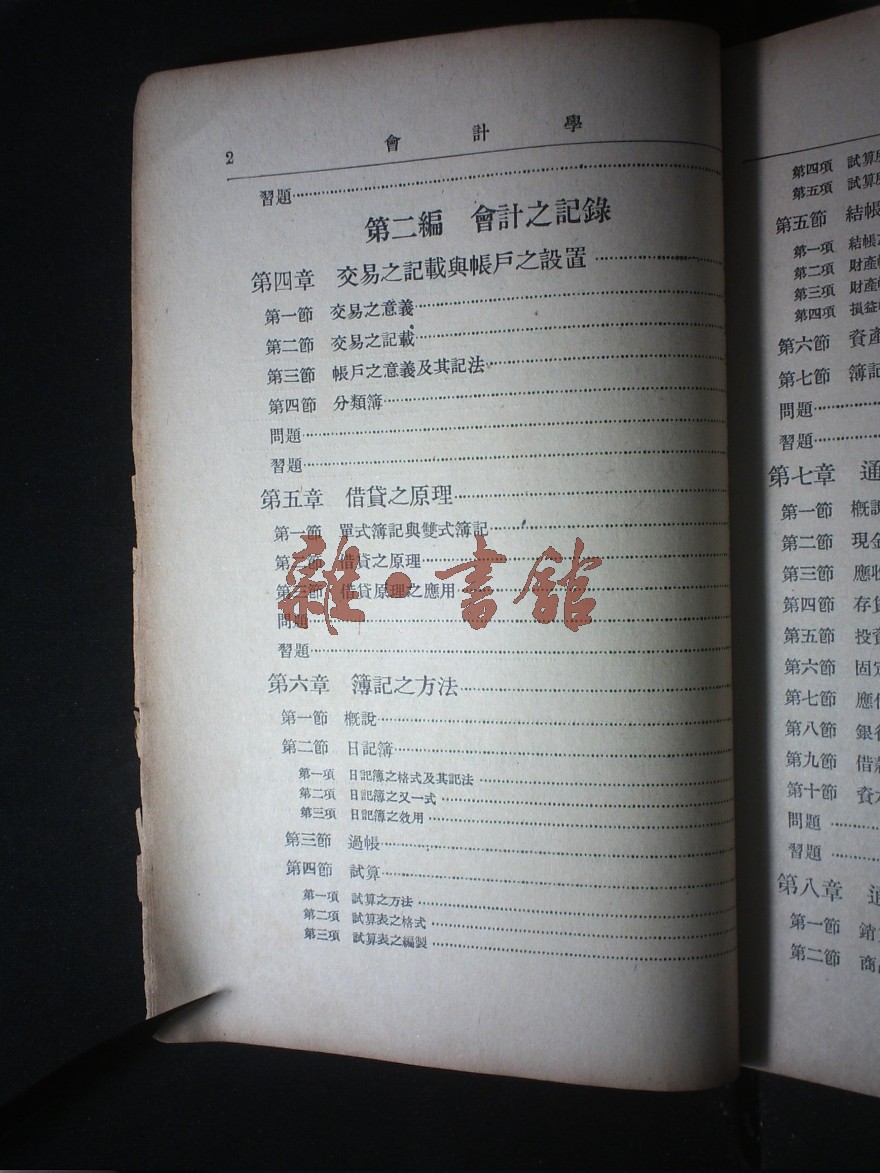 2 會計學
習題
第二編 會計之記錄
第四章 交易之記載與帳戶之設置
第一節 交易之意義
第二節 交易之記載
第三節 帳戶之意義及其記法
第四節 分類簿
問題
習題
第五章 借貸之原理
第一節 單式簿記與雙式簿記
第二節 借貸之原理
第三節 借貸原理之應用
問題
習題
第六章 簿記之方法
第一節 概說
第二節 日記簿
第一項 日記簿之格式及其記法
第二項 日記簿之又一式
第三項 日記簿之效用
第三節 過帳
第四節 試算
第一項 試算之方法
第二項 試算表之格式
第三項 試算表之編製
雜·書館
第四項 試算
第五項 試算
第五節 結帳
第一項 結帳
第二項 財產
第三項 財產
第四項 損益
第六節 資產
第七節 簿記
問題
習題
第七章 通
第一節 概說
第二節 現金
第三節 應收
第四節 存貨
第五節 投資
第六節 固定
第七節 應付
第八節 銀行
第九節 借
第十節 資本
問題
習題
第八章 通
第一節 銷
第二節 商品